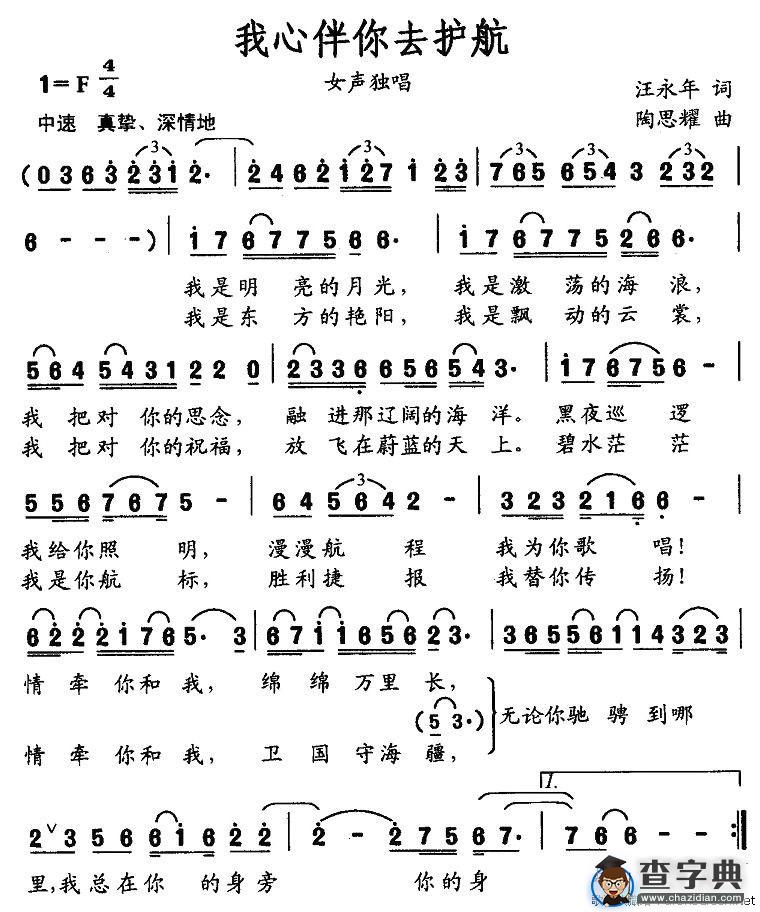 我心伴你去护航
1=F 4/4
女声独唱
汪永年 词
中速 真挚、深情地
陶思耀 曲
(0 3 6 3 2 3 1 2· 2 4 6 2 1 2 7 1 2 3 | 7 6 5 6 5 4 3 2 3 2 |
6 - - -) | 1 7 6 7 7 5 6 6 6· | 1 7 6 7 7 5 2 6 6· |
我是明 亮的月光， 我是激 荡的海 浪，
我是东 方的艳阳， 我是飘 动的云 裳，
5 6 4 5 4 3 1 2 2 0 | 2 3 3 6 6 5 6 5 4 3· | 1 7 6 7 5 6 - |
我 把对 你的思念， 融 进那辽阔的海 洋。 黑夜巡 逻
我 把对 你的祝福， 放 飞在蔚蓝的天 上。 碧水茫 茫
5 5 6 7 6 7 5 - | 6 4 5 6 4 2 - | 3 2 3 2 1 6 6 - |
我给你照 明， 漫漫航 程 我为你歌 唱！
我是你航 标， 胜利捷 报 我替你传 扬！
6 2 2 2 1 7 6 5· 3 | 6 7 1 1 6 5 6 2 3· | 3 6 5 5 6 1 1 4 3 2 3 |
情 牵 你和 我， 绵 绵 万里 长，
(5 3·) 无论你驰 骋 到哪
情 牵 你和 我， 卫 国 守海 疆，
1.
2 ∨ 3 5 6 6 1 6 2 2 | 2 - 2 7 5 6 7· | 7 6 6 - - :||
里，我 总在你 的身旁 你的身
查字典
www.chazidian.com